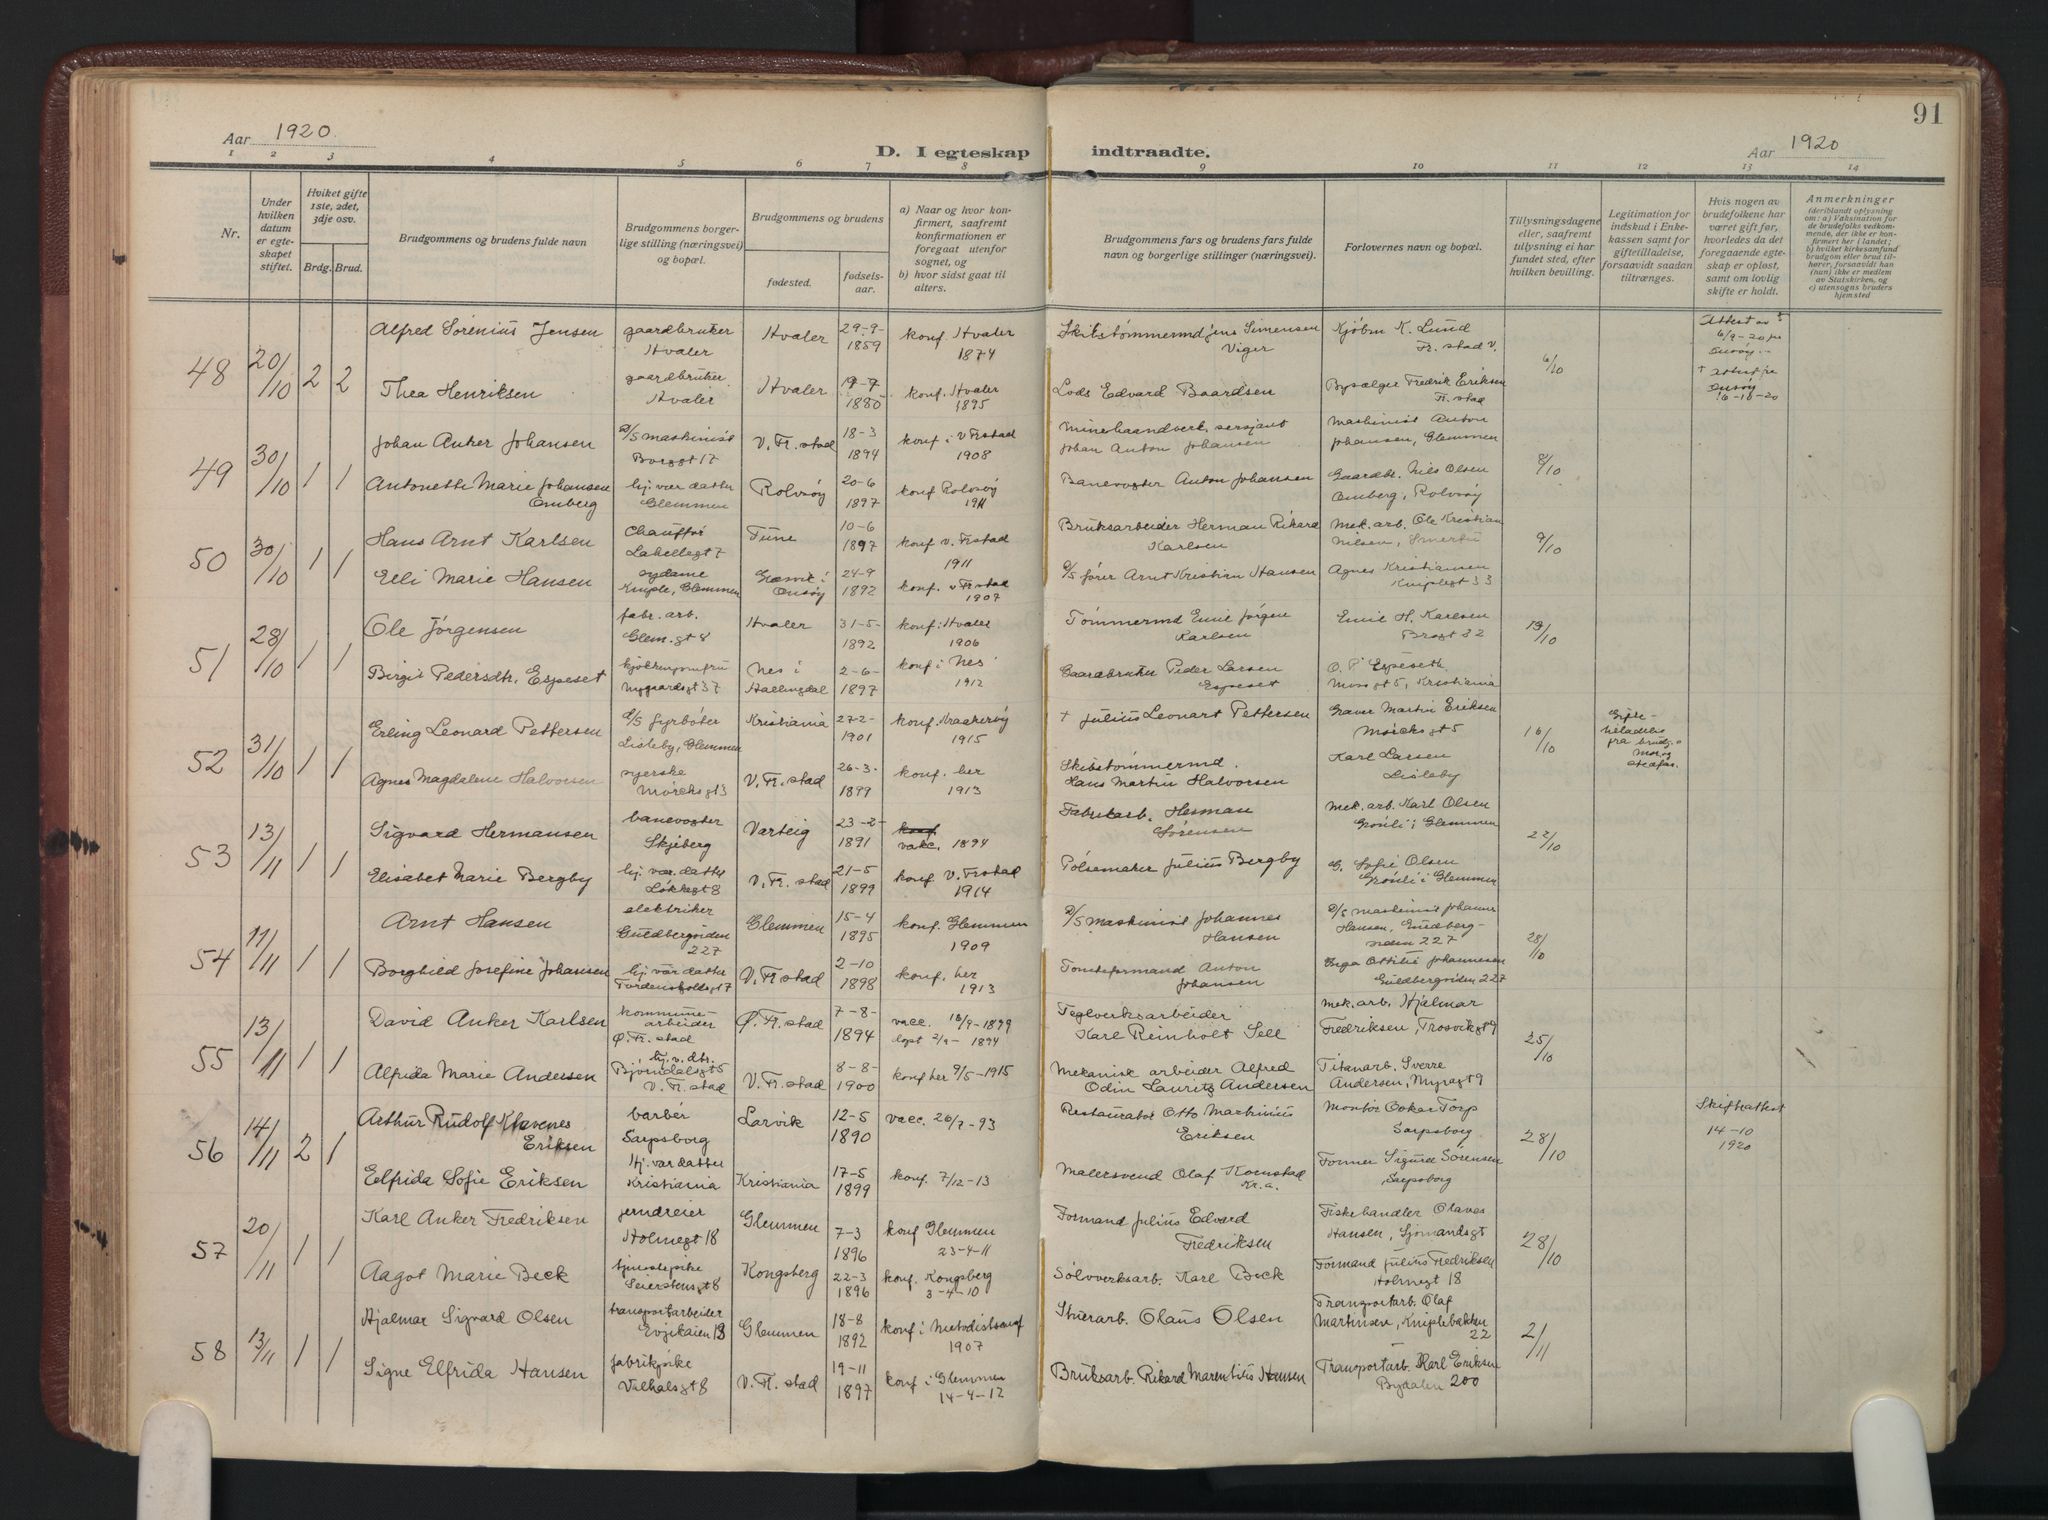 91
Aar 1920.
D. I egteskap indtraadte.
Aar 1920
1 2 3 4 5 6 7 8 9 10 11 12 13 14
Nr.
Under hvilken datum er egteskapet stiftet.
Hviket gifte 1ste, 2det, 3dje osv.
Brdg. Brud.
Brudgommens og brudens fulde navn
Brudgommens borgerlige stilling (næringsvei) og bopæl.
Brudgommens og brudens
fødested.
fødselsaar.
a) Naar og hvor konfirmert, saafremt konfirmationen er foregaat utenfor sognet, og
b) hvor sidst gaat til alters.
Brudgommens fars og brudens fars fulde navn og borgerlige stillinger (næringsvei).
Forlovernes navn og bopæl.
Tillysningsdagene eller, saafremt tillysning ei har fundet sted, efter hvilken bevilling.
Legitimation for indskud i Enkekassen samt for giftetilladelse, forsaavidt saadan tiltrænges.
Hvis nogen av brudefolkene har været gift før, hvorledes da det foregaaende egteskap er opløst, samt om lovlig skifte er holdt.
Anmerkninger
(deriblandt oplysning om: a) Vaksination for de brudefolks vedkommende, der ikke er konfirmert her i landet; b) hvilket kirkesamfund brudgom eller brud tilhører, forsaavidt han (hun) ikke er medlem av Statskirken, og c) utensogns bruders hjemsted
48 20/10 2 2
Alfred Sørenius Jensen gaardbruker Hvaler Hvaler 29-9-1859 konf. Hvaler 1874 Skibstømmermd Jens Simensen Viger Kjøbm K. Lund Fr. stad V. 6/10 Attest av 6/9-20 fra Onsøy
Thea Henriksen gaardbruker Hvaler Hvaler 19-7-1880 konf. Hvaler 1895 Lods Edvard Baardsen Bysælger Fredrik Eriksen Fr. stad Onsøy 16-10-20
49 30/10 1 1
Johan Anker Johansen D/S maskinist Borggt 17 V. Fr. stad 18-3 1894 konf i V Frstad 1908 Minehaandverk. sersjant Johan Anton Johansen maskinist Anton Johansen, Glemmen 8/10
Antonette Marie Johansen Omberg hj. vær. datter Glemmen Rolvsøy 20-6 1897 konf Rolvsøy 1911 Banevogter Anton Johansen Gaardbr. Nils Olsen Omberg, Rolvsøy
50 30/10 1 1
Hans Arnt Karlsen Chauffør Labellesgt 7 Tune 10-6 1897 konf v. Frstad 1911 Bruksarbeider Herman Rikard Karlsen mek. arb. Ole Kristian Nilsen, 9/10
Elli Marie Hansen sydame Kniple, Glemmen Græsvik i Onsøy 24-9 1892 konf. v Fr stad 1907 D/S fører Arnt Kristian Hansen Agnes Kristiansen Kniplegt 33
51 28/10 1 1
Ole Jørgensen fabr. arb. Glem.gt 8 Hvaler 31-5-1892 konf. Hvaler 1906 Tømmermd Emil Jørgen Karlsen Emil H. Karlsen Brogt 32 13/10
Birgit Pedersdtr. Espeset kjøkkenjomfru Nygaardsgt 37 Nes i Hallingdal 2-6-1897 konf i Nes 1912 Gaardbruker Peder Larsen Espeset O. P. Espeseth Mossgt 5, Kristiania
52 31/10 1 1
Erling Leonard Pettersen D/S fyrbøter Lisleby, Glemmen Kristiania 27-2-1901 konf. Kraakerøy 1915 † Julius Leonart Pettersen Graver Martin Eriksen Mørcksgt 5 16/10 Giftetiladelse fra brudg. mor og stefar.
Agnes Magdalene Halvorsen syerske Mørcksgt 3 V. Fr. stad 26-3-1899 konf. her 1913 Skibstømmermd. Hans Martin Halvorsen Karl Larsen Lisleby
53 13/11 1 1
Sigvard Hermansen banevogter Skjeberg Varteig 23-2-1891 konf vakc. 1894 Fabrikarb. Herman Sørensen mek. arb. Karl Olsen Grønli i Glemmen 22/10
Elisabet Marie Bergby hj. vær. datter Løkkegt 8 V. Fr. stad 21-5 1899 konf V. Frstad 1914 Pølsemaker Julius Bergby G. Sofie Olsen Grønli i Glemmen
54 11/11 1 1
Arnt Hansen elektriker Guldbergsiden 227 Glemmen 15-4 1895 konf. Glemmen 1909 D/S maskinist Johannes Hansen D/S maskinist Johannes Hansen, Guldbergsiden 227 28/10
Borghild Josefine Johansen hj. vær datter Tordenskjoldsgt 7 V. Fr. stad 2-10 1898 konf. her 1913 Tomteformand Anton Johansen Inga Ottilie Johannesen Guldbergsiden 227
55 13/11 1 1
David Anker Karlsen kommunearbeider Ø. Fr. stad Ø. Fr. stad 7-8-1894 vacc. 18/9-1899 døpt 2/9-1894 Teglverksarbeider Karl Reinholt Sell mek. arb. Hjalmar Fredriksen, Trosvikgt 9 25/10
Alfrida Marie Andersen hj. v. dtr. Bjørndalsgt 5 V. Fr. stad V. Fr. stad 8-8-1900 konf her 9/5-1915 Mekanisk arbeider Alfred Odin Lauritz Andersen Titanarb. Sverre Andersen, Myragt 9
56 14/11 2 1
Arthur Rudolf Klavenes Eriksen barbér Sarpsborg Larvik 12-5 1890 vacc. 26/7-93 Restauratør Otto Martinius Eriksen Montør Oskar Torp Sarpsborg 28/10 Skifteattest 14-10 1920
Elfrida Sofie Eriksen Hj. vær datter Kristiania Kristiania 17-5 1899 konf. 7/12-13 Malersvend Olaf Kornstad Kr.a. Former Sigurd Sørensen Sarpsborg
57 20/11 1 1
Karl Anker Fredriksen jerndreier Holmegt 18 Glemmen 7-3 1896 konf Glemmen 23-4-11 Formand Julius Edvard Fredriksen Fiskehandler Olaves Hansen, Sjømandsgt 28/10
Aagot Marie Beck tjenestepike Seierstensgt 8 Kongsberg 22-3 1896 konf. Kongsberg 3-4-10 Sølvverksarb. Karl Beck Formand Julius Fredriksen Holmegt 18
58 13/11 1 1
Hjalmar Sigvard Olsen transportarbeider Evjekaien 18 Glemmen 18-8 1892 konf i Metodistsamf 1907 Stuerarb. Olaus Olsen Transportarb. Olaf Martinsen, Kniplebakken 22 2/11
Signe Elfrida Hansen fabrikpike Valhalsgt 8 V. Fr. stad 19-11 1897 konf i Glemmen 14-4-12 Bruksarb. Rikard Marentius Hansen Transportarb. Karl Eriksen Bydalen 200